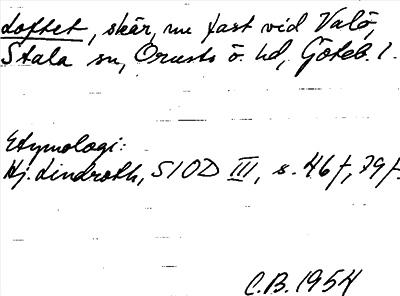 Loftet, skär, nu fast vid Valö,
Stala sn, Orusts ö. hd, Göteb. l.
Etymologi:
Hj. Lindroth, SIOD III, s. 46 f, 79 f.
C.B. 1954